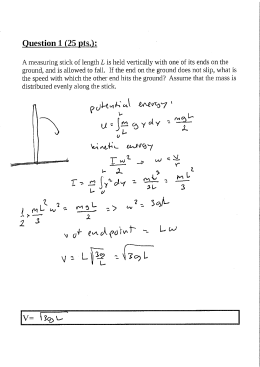 Question 1 (25 pts.):
A measuring stick of length L is held vertically with one of its ends on the
ground, and is allowed to fall. If the end on the ground does not slip, what is
the speed with which the other end hits the ground? Assume that the mass is
distributed evenly along the stick.
potential energy:
U = ∫₀ᴸ m/L g y dy = mgL/2
kinetic energy
Iw²/2 → w = v/r
I = m/L ∫₀ᴸ y² dy = mL³/3L = mL²/3
1/2 · mL²/3 w² = mgL/2 => w² = 3g/L
v at endpoint = Lw
V = L√(3g/L) = √(3gL)
V= √(3gL)